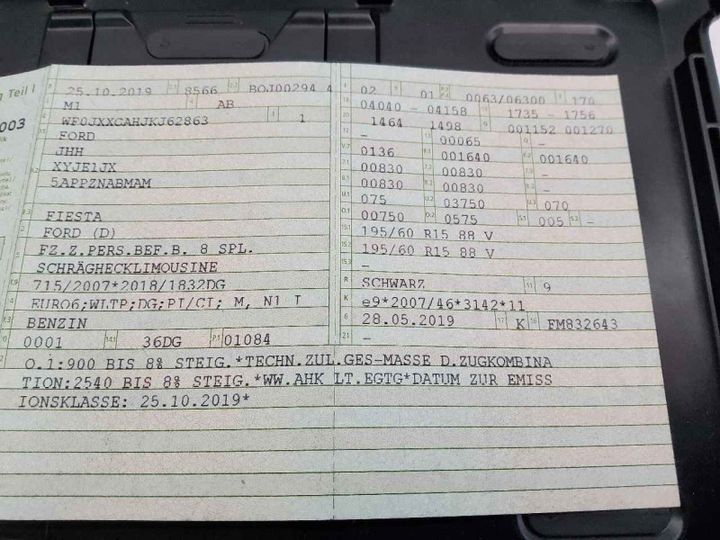 Teil I
25.10.2019 8566 BOJ00294 4
M1 AB
003 WF0JXXCAHJKJ62863 1
FORD
JHH
XYJE1JX
5APPZNABMAM
FIESTA
FORD (D)
FZ.Z.PERS.BEF.B. 8 SPL.
SCHRÄGHECKLIMOUSINE
715/2007*2018/1832DG
EURO6;WLTP;DG;PI/CI; M, N1 I
BENZIN
0001 36DG 01084
02 01 0063/06300 170
04040 - 04158 1735 - 1756
1464 1498 001152 001270
- 00065 -
0136 001640 001640
00830 00830 -
00830 00830 -
075 03750 070
00750 0575 005 -
195/60 R15 88 V
195/60 R15 88 V
-
R SCHWARZ 11 9
K e9*2007/46*3142*11
6 28.05.2019 17 K 16 FM832643
21 -
O.1:900 BIS 8% STEIG.*TECHN.ZUL.GES-MASSE D.ZUGKOMBINA
TION:2540 BIS 8% STEIG.*WW.AHK LT.EGTG*DATUM ZUR EMISS
IONSKLASSE: 25.10.2019*